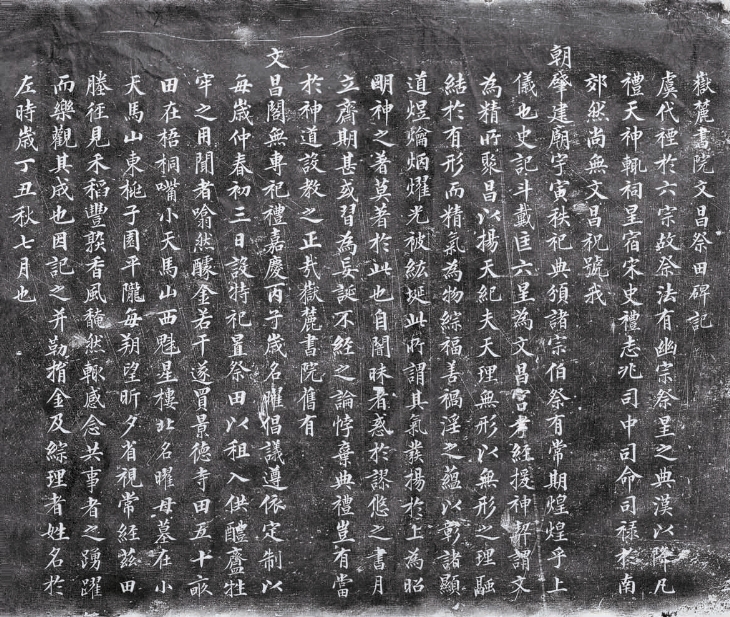 嶽麓書院文昌祭田碑記
虞代禋於六宗故祭法有幽宗祭星之典漢以降凡
禮天神輒祠星宿宋史禮志兆司中司命司祿於南
郊然尚無文昌祝號我
朝肇建廟宇寅秩祀典頒諸宗伯祭有常期煌煌乎上
儀也史記斗戴匡六星為文昌宮孝經援神契謂文
為精所聚昌以揚天紀夫天理無形以無形之理驅
結於有形而精氣為物綜福善禍淫之蘊以彰諸顯
道煜爚炳燿光被紘埏此所謂其氣發揚於上為昭
明神之著莫著於此也自闇昧者惑於謬悠之書月
立齋期甚或習為妄誕不經之論悖棄典禮豈有當
於神道設教之正哉嶽麓書院舊有
文昌閣無專祀禮嘉慶丙子歲名曜倡議遵依定制以
每歲仲春初三日設特祀置祭田以租入供醴齍牲
牢之用聞者喻然醵金若干遂買景德寺田五十畝
田在梧桐嘴小天馬山西魁星樓北名曜母墓在小
天馬山東桃子園平隴每朔望昕夕省視常經茲田
塍徑見禾稻豐熟香風馣然輒感念共事者之踴躍
而樂觀其成也因記之并勒捐金及綜理者姓名於
左時歲丁丑秋七月也